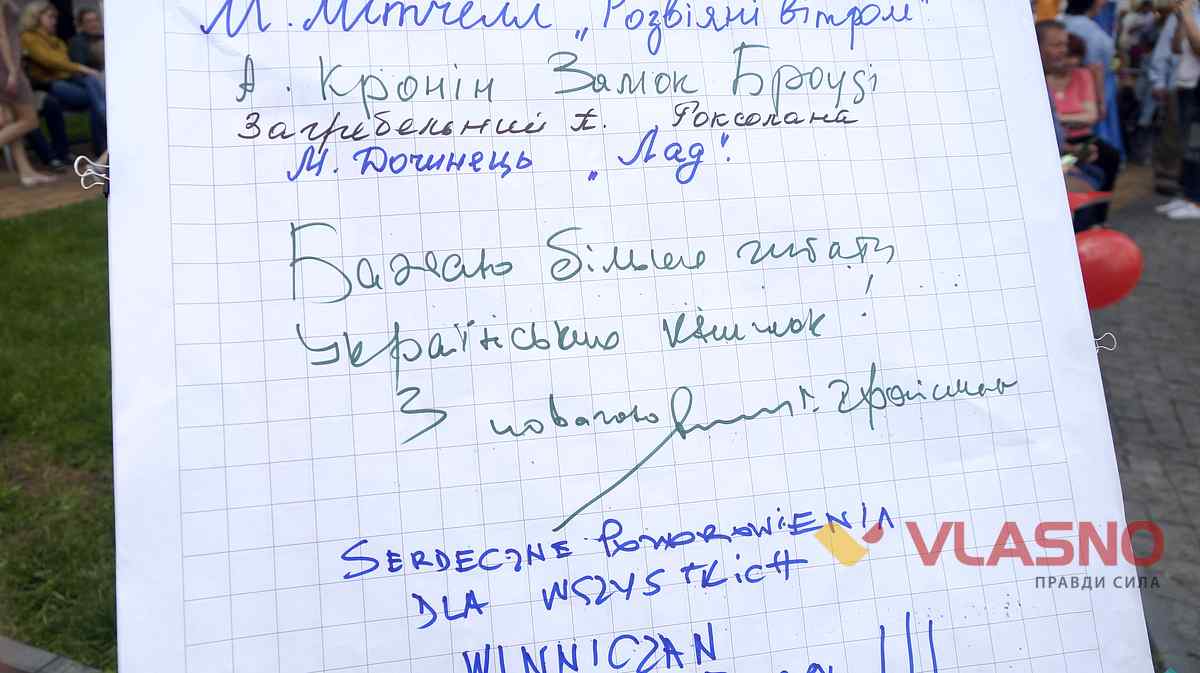 М. Мітчелл „Розвіяні вітром"
А. Кронін Замок Броуді
Загребельний П. Роксолана
М. Дочинець „Лад".
Бажаю більше читати
українських книжок!
З повагою Гройсман
SERDECZNE POZDROWIENIA
DLA WSZYSTKICH
WINNICZAN
!!!
VLASNO
ПРАВДИ СИЛА